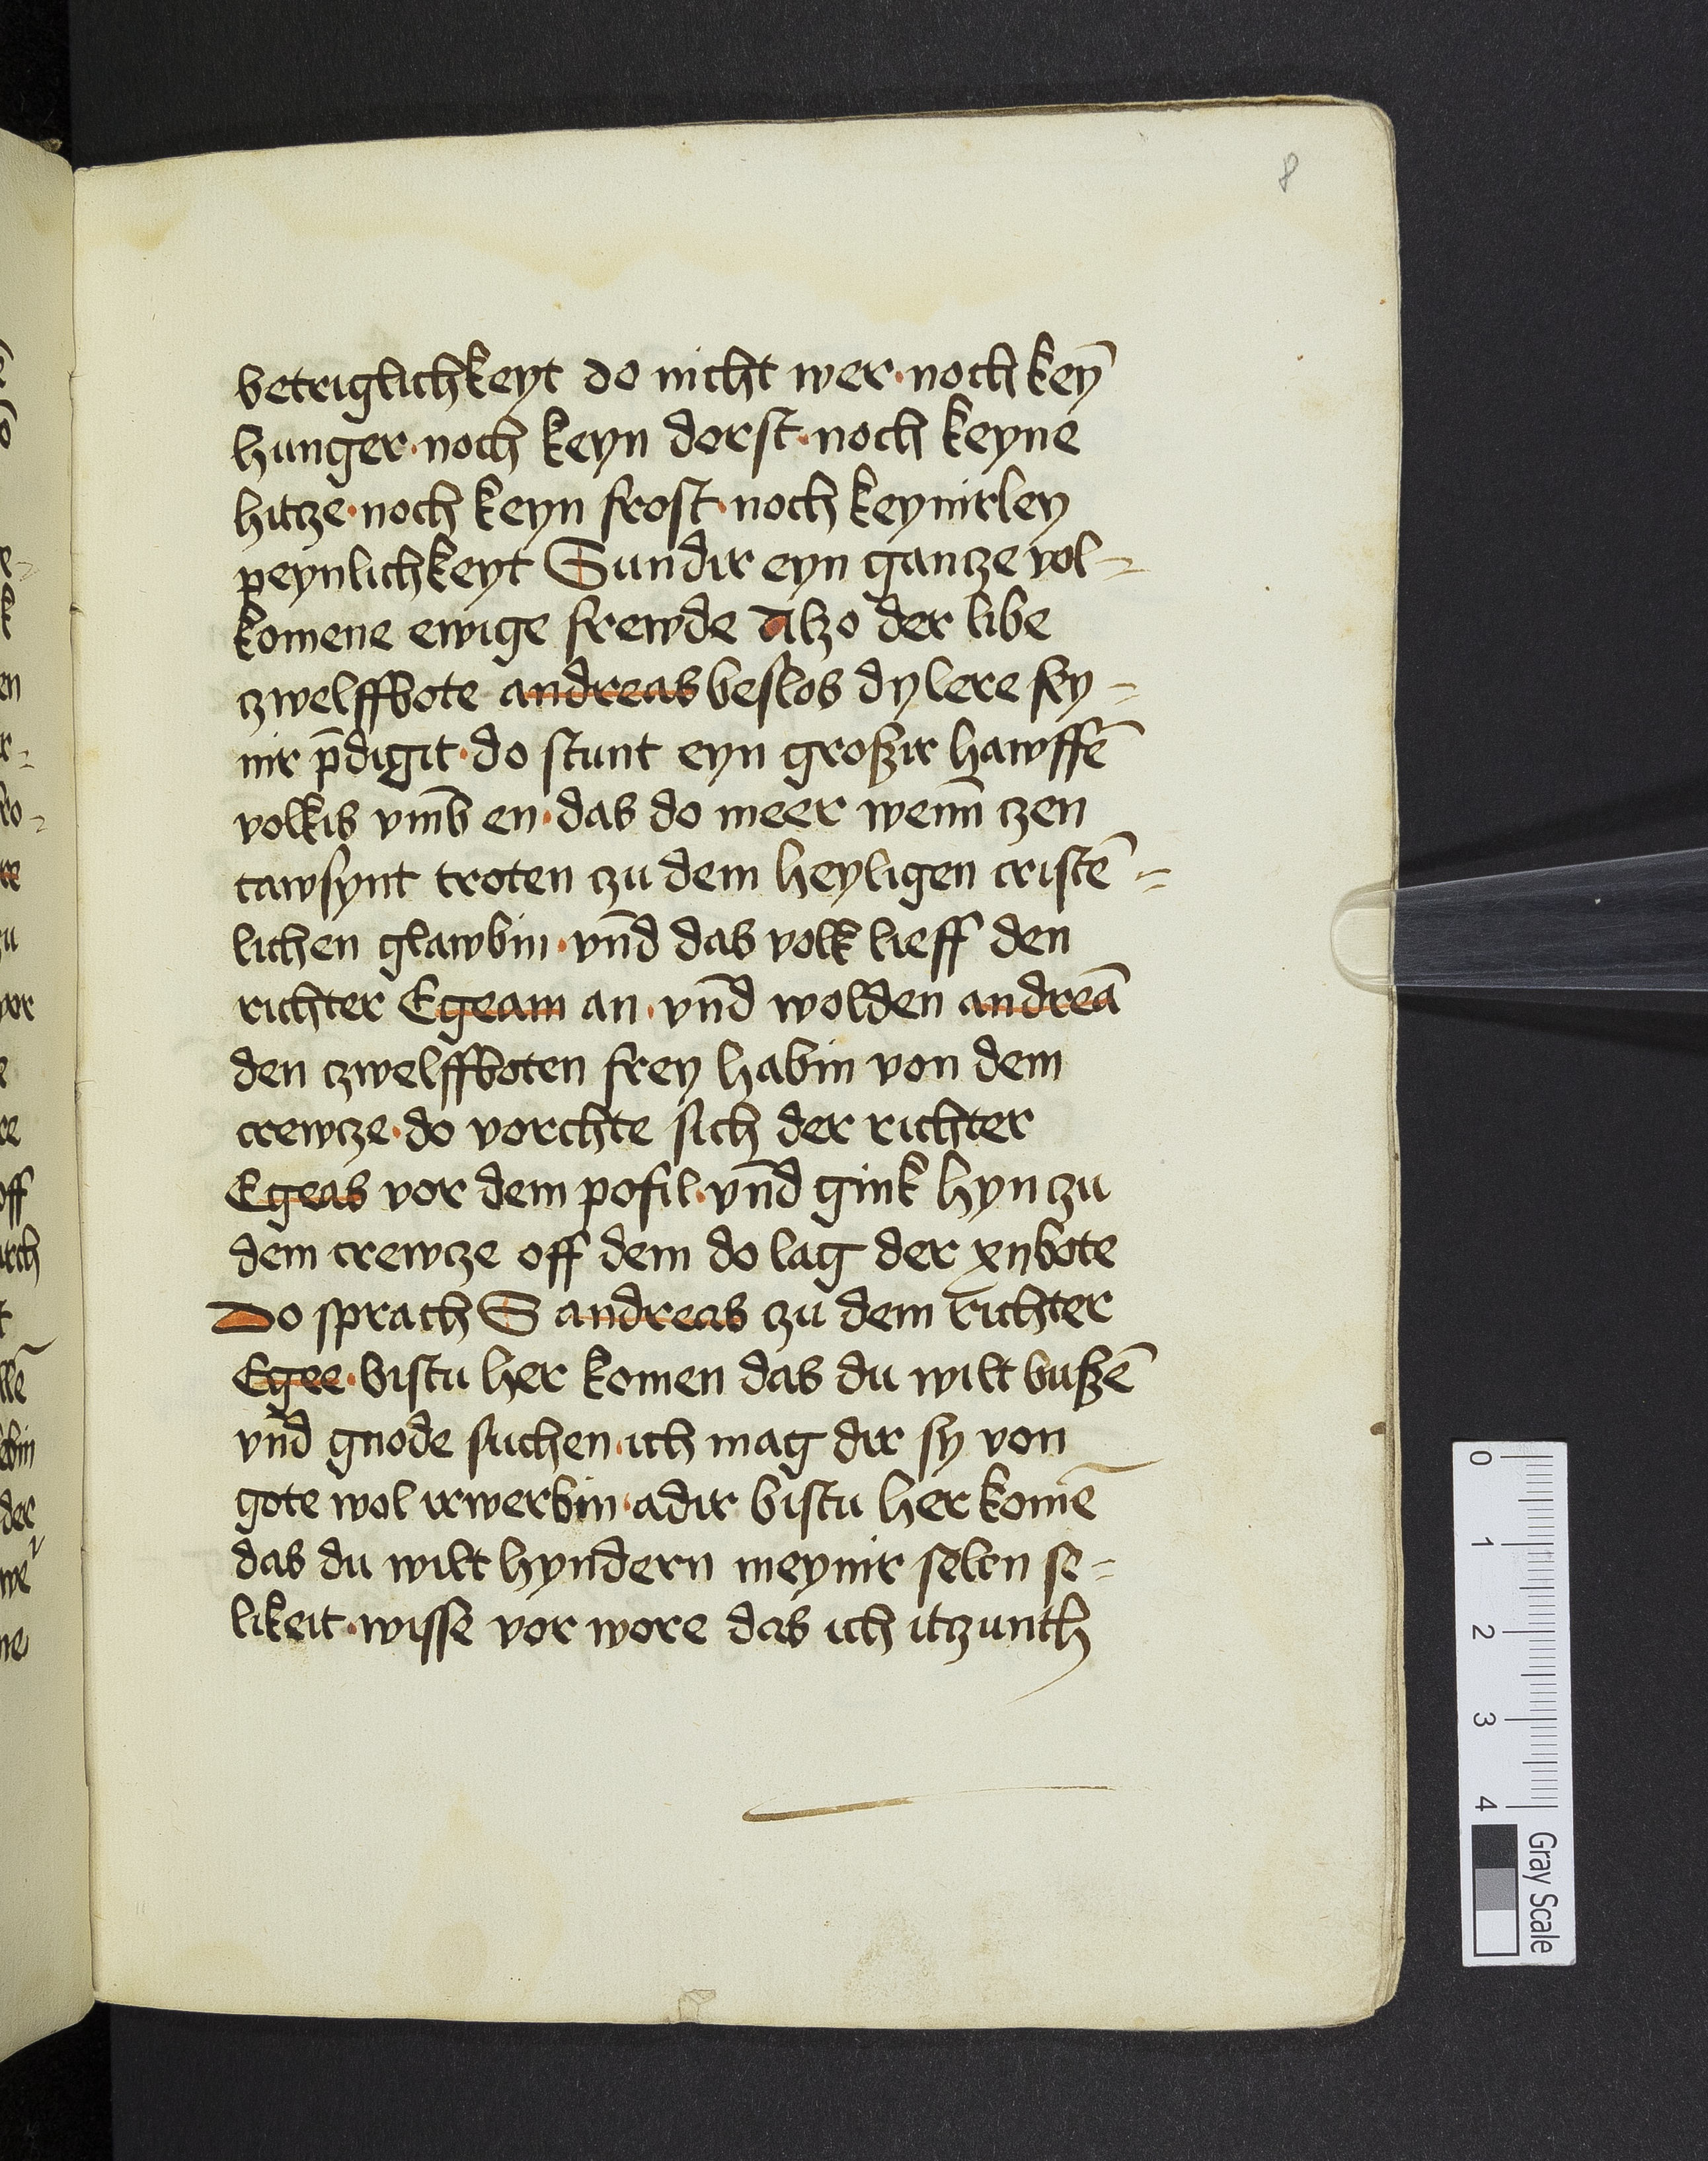 8
betriglichkeyt do nicht wer · noch keȳ
hunger · noch keyn dorst · noch keyne
hitcze · noch keyn frost · noch keynirley
peynlichkeyt Sundir eyn gantcze vol-
komene ewige frewde Alzo der libe
czwelffbote andreas beslos dy lere sey-
nir p̄digit · do stunt eyn großir hawffē
volkis vmb en · das do meer wenn̄ czen
tawsynt troten czu dem heyligen cristē-
lichen glawbin · vnd̄ das volk lieff den
richter Egeam an · vnd̄ wolden andreā
den czwelffboten frey habin von dem
crewcze · do vorchte sich der richter
Egeas vor dem pofil · vnd̄ gink hyn czu
dem crewcze off dem do lag der xnbote
Do sprach S andreas czu dem richter
Egee · bistu her komen das du wilt bußē
vnd̄ gnode suchen · ich mag dir sy von
gote wol irwerbin · adir bistu her komē
das du wilt hyndern meynir selen se-
likeit · wisse vor wore das ich itzunth
0
1
2
3
4
Gray Scale